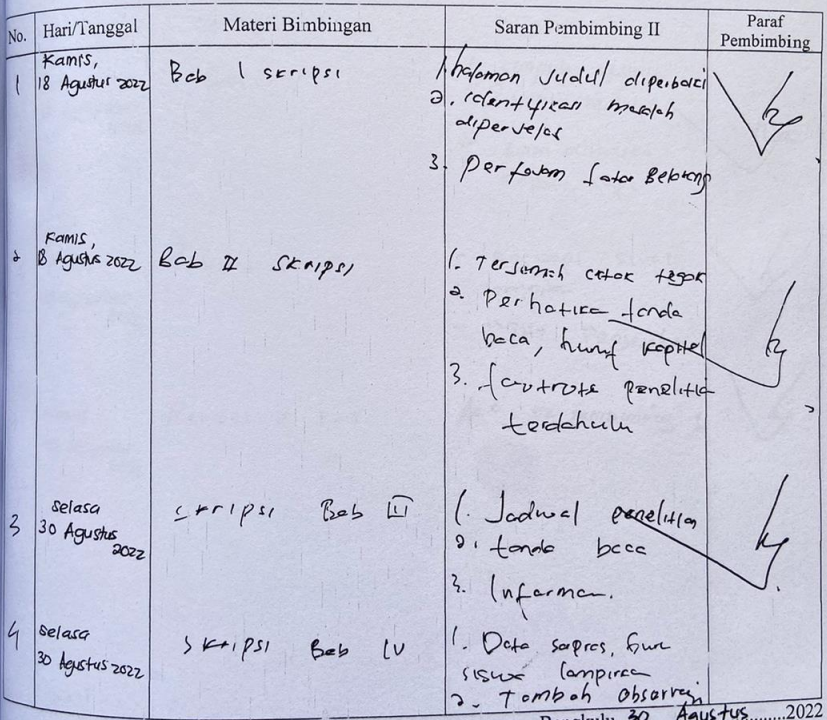 No. Hari/Tanggal Materi Bimbingan Saran Pembimbing II Paraf Pembimbing
1 Kamis, 18 Agustus 2022 Bab I skripsi
1. halaman judul diperbaiki
2. identifikasi masalah
diperjelas
3. Pertajam latar Belakang
2 Kamis, 18 Agustus 2022 Bab II skripsi
1. Terjemah cetak tegak
2. Perhatika tanda
baca, huruf kapital
3. footnote penelitia
terdahulu
3 Selasa 30 Agustus 2022 skripsi Bab III
1. Jadwal penelitian
2. tanda baca
3. Informan.
4 Selasa 30 Agustus 2022 Skripsi Bab IV
1. Data sapras, guru
siswa lampiran
2. Tambah observasi
30 Agustus 2022